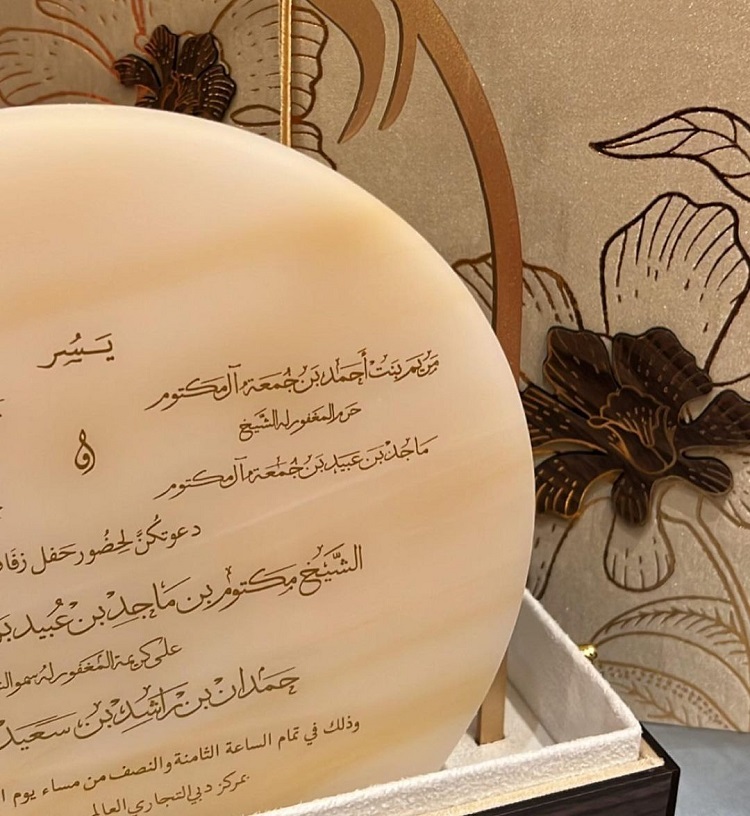 يَسُر
مَريَم بنت أَحمَد بن جُمعَة آل مكتوم
حَرم المغفور له الشَّيخ
و
مَاجد بن عَبيد بن جُمعَة آل مكتوم
دعوتكُنَّ لحضُور حَفل زفَا
الشَّيخ مكتوم بن مَاجد بن عُبيد بن
على كريمة المغفور له سمو ال
حَمدان بن رَاشد بن سعيد
وذلك في تمام الساعة الثامنة والنصف من مساء يوم ا
بمركز دبي التجاري العالم